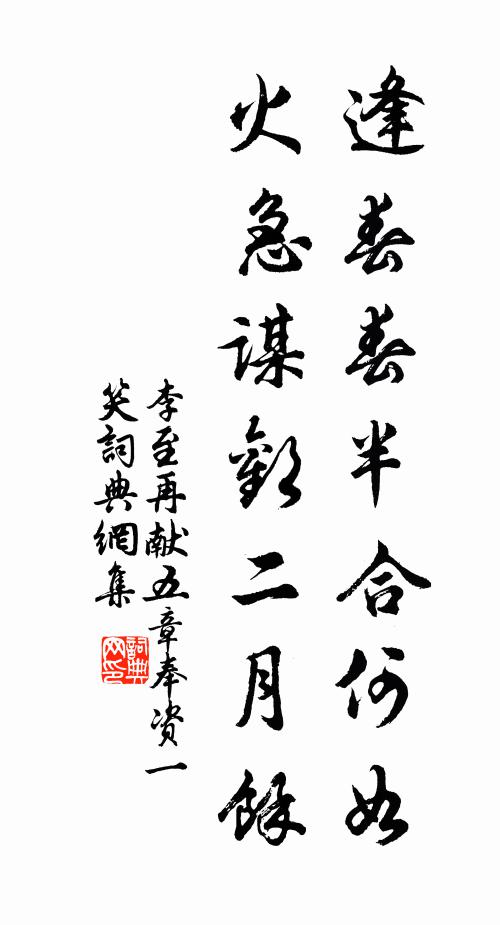 逢春春半合何如
火急謀歡二月餘
李至再献五章奉资一
笑詞典網集
詞典
网印